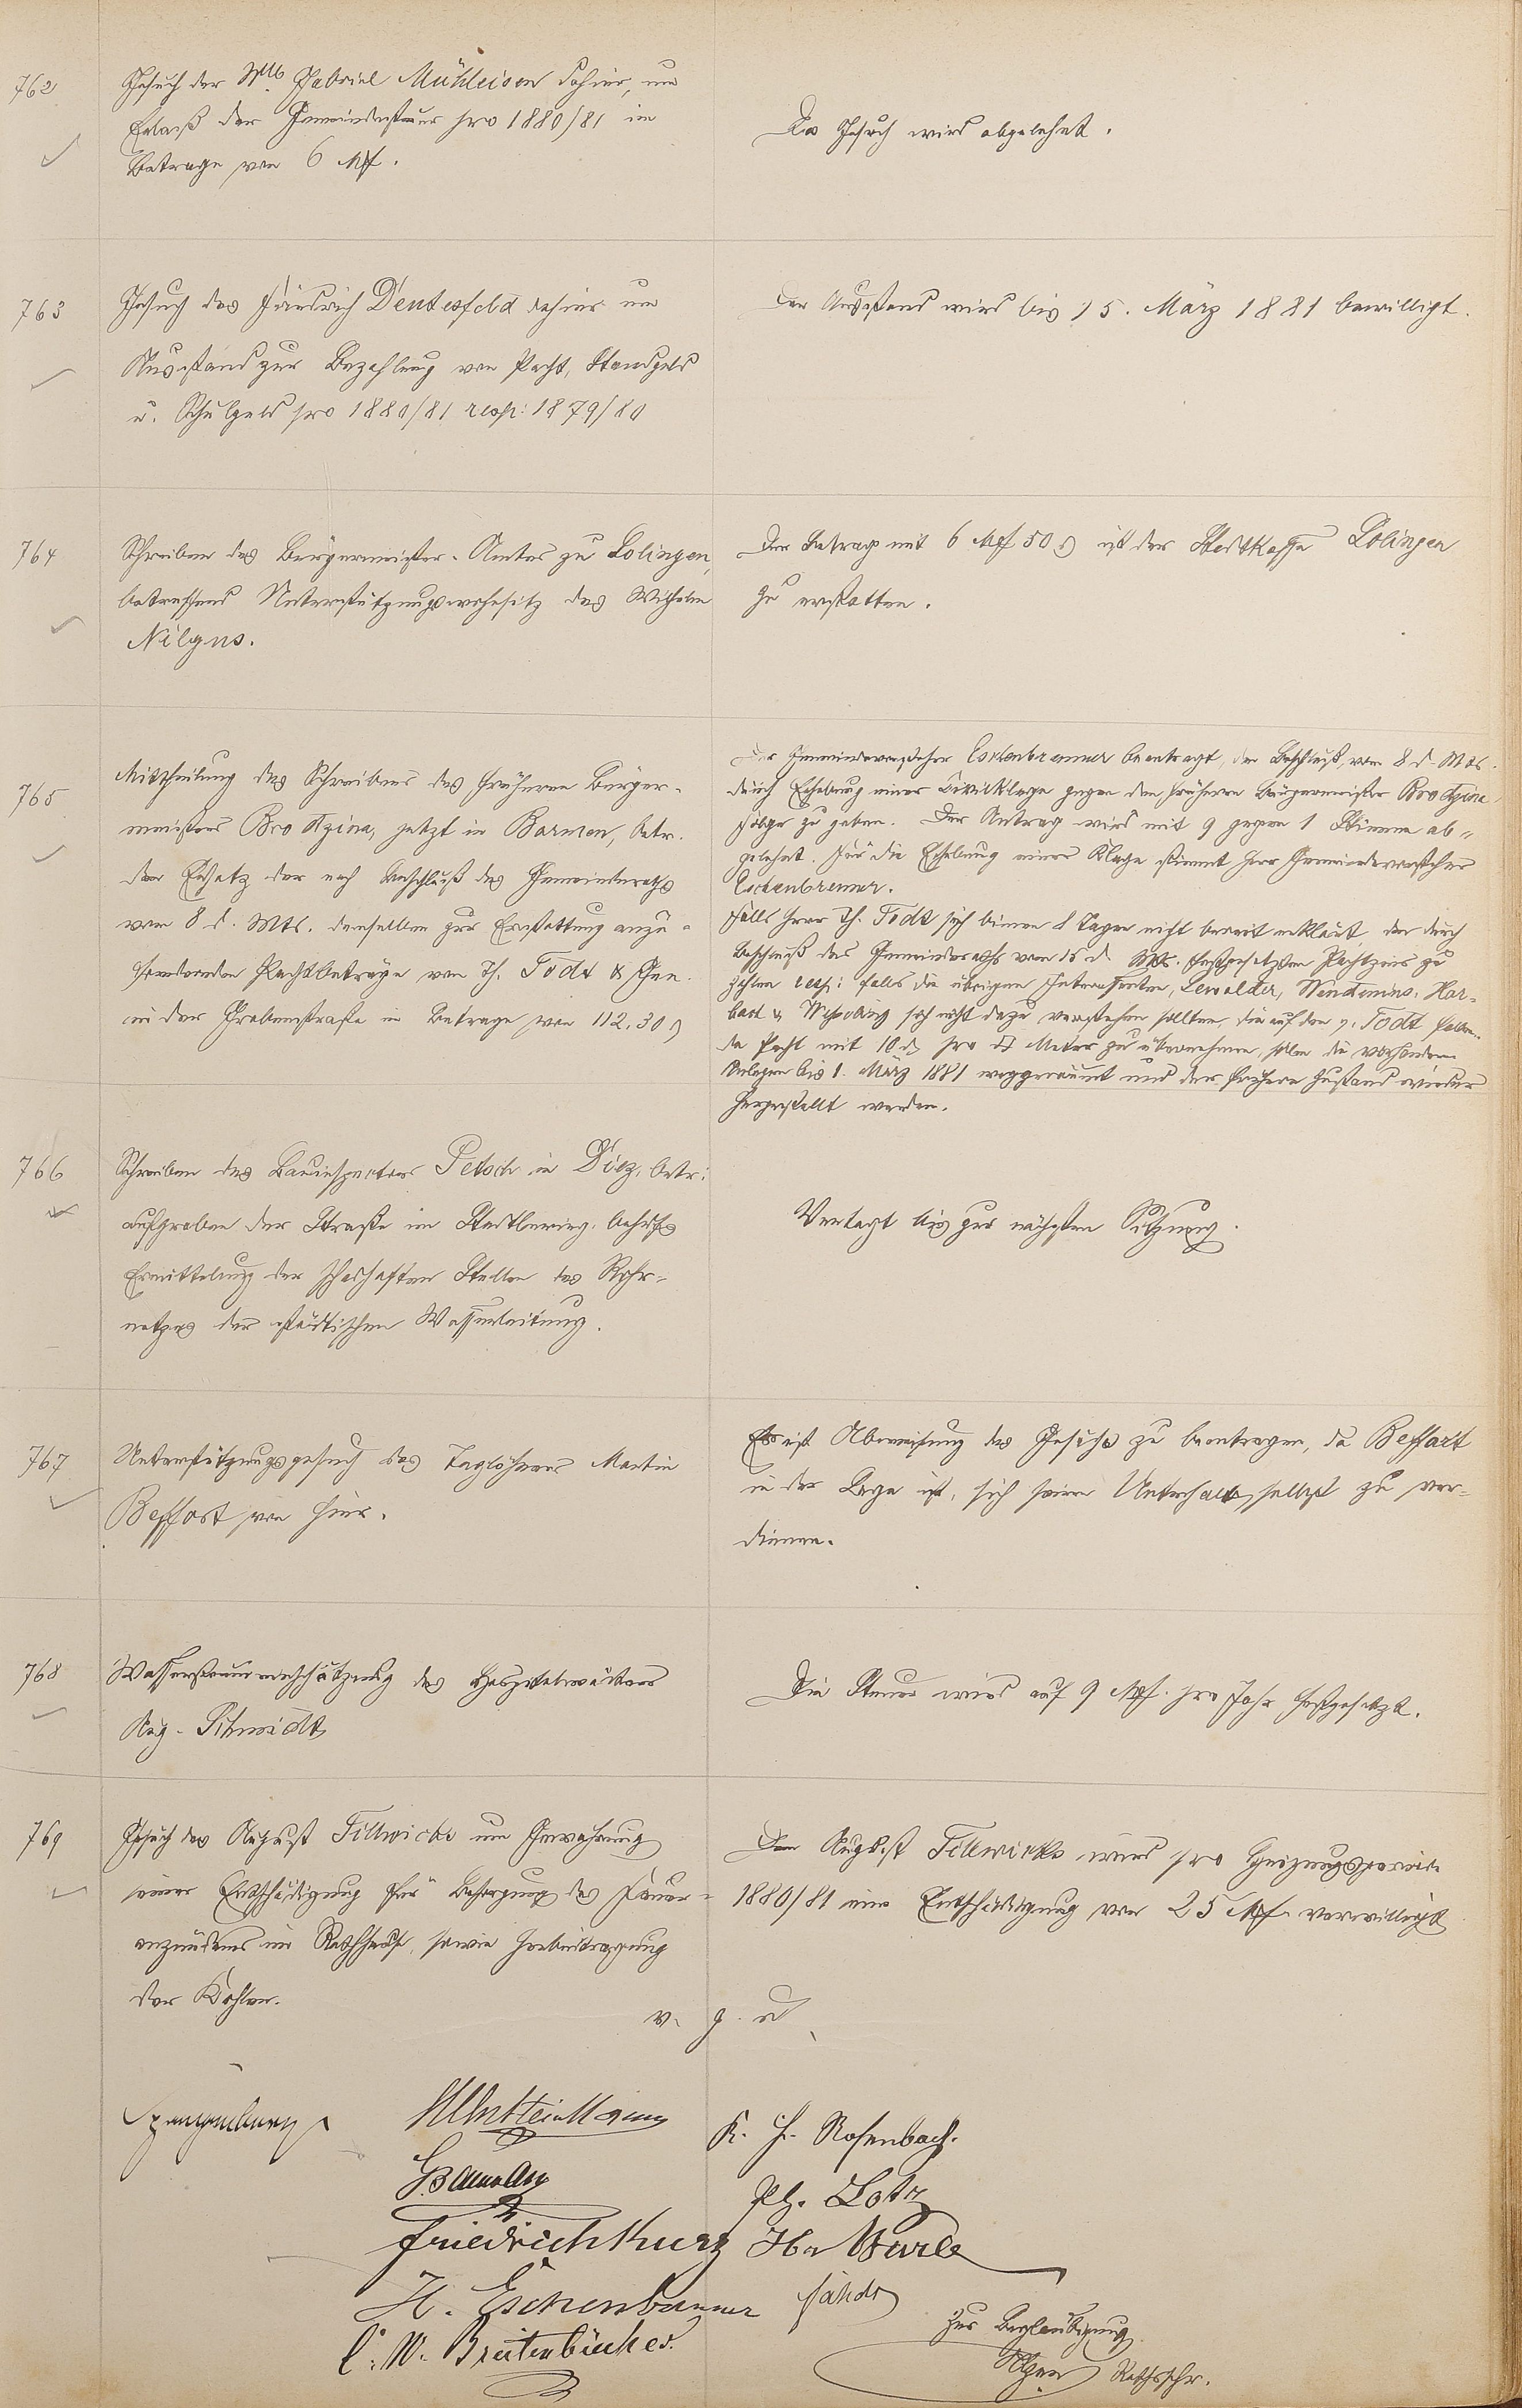 762
Gesuch der Wtb. Gabriel Mühleisen dahier, um
Erlaß der Gemeindesteuer pro 1880/81 im
Betrage von 6 Mk.
Das Gesuch wird abgelehnt.
763
Gesuch des Heinrich Dentesfeld dahier um
Ausstand zur Bezahlung von Pacht, Standgeld
u. Schulgeld pro 1880/81 resp: 1879/80
Der Ausstand wird bis 15. März 1881 bewilligt.
764
Schreiben des Bürgermeister-Amtes zu Solingen,
betreffend Unterstützungswohnsitz des Wilhelm
Nilgus.
Der Betrag mit 6 Mk 50 ₰ ist der Stadtkasse Solingen
zu erstatten.
765
Mittheilung des Schreibens des früheren Bürger-
meisters Brodzina, jetzt in Barmen, betr.
den Ersatz der nach Beschluß des Gemeinderaths
vom 8 d. Mts. denselben zur Erstattung anzu-
fordernden Pachtbeträge von Th. Todt & Gen.
in der Grabenstraße im Betrage von 112,30 ₰
Der Gemeindevorsteher Eschenbrenner beantragt, den Beschluß vom 8 d. Mts.
durch Erhebung einer Civilklage gegen den früheren Bürgermeister Brodzina
Folge zu geben. Der Antrag wird mit 9 gegen 1 Stimme ab-
gelehnt. Für die Erhebung einer Klage stimmt Herr Gemeindevorsteher
Eschenbrenner.
Falls Herr Th. Todt sich binnen 8 Tagen nicht bereit erklärt, den durch
Beschluß des Gemeinderaths vom 15 d. Mts. festgesetzten Pachtzins zu
zahlen resp: falls die übrigen Interessenten, Lewalter, Har-
bach & sich nicht dazu verstehen sollten, die auf den p. Todt fallen-
de Pacht mit 10 ₰ pro □ Meter zu übernehmen, sollen die vorhandenen
Anlagen bis 1. März 1881 weggeräumt und der frühere Zustand wieder
hergestellt werden.
766
Schreiben des Bauinspectors Petsch in Diez, betr:
Aufgraben der Straße im Stadtbering, behufs
Ermittelung der schadhaften Stellen des Rohr-
netzes der städtischen Wasserleitung.
Vertagt bis zur nächsten Sitzung.
767
Unterstützungsgesuch des Taglöhners Martin
Beffart von hier.
Es ist Abweisung des Gesuchs zu beantragen, da Beffart
in der Lage ist, sich seinen Unterhalt selbst zu ver-
dienen.
768
Wassersteuereinschätzung des Hospitalwärters
Aug. Schmidt
Die Steuer wird auf 9 Mk. pro Jahr festgesetzt.
769
Gesuch des August Fillwicks um Gewährung
einer Entschädigung für Besorgung des Feuer-
anzündens im Rathhause, sowie Herbeitragung
der Kohlen.
Dem August Fillwicks wird pro Heizungsperiode
1880/81 eine Entschädigung von 25 Mk verwilligt
v. g. u.
Spangenberg
K. H. Rosenbach.
G. Baumann
Ph. Lotz
Friedrich Kurz
H. Eschenbrenner
C. W. Breitenbücher.
Zur Beglaubigung
Rathsschr.